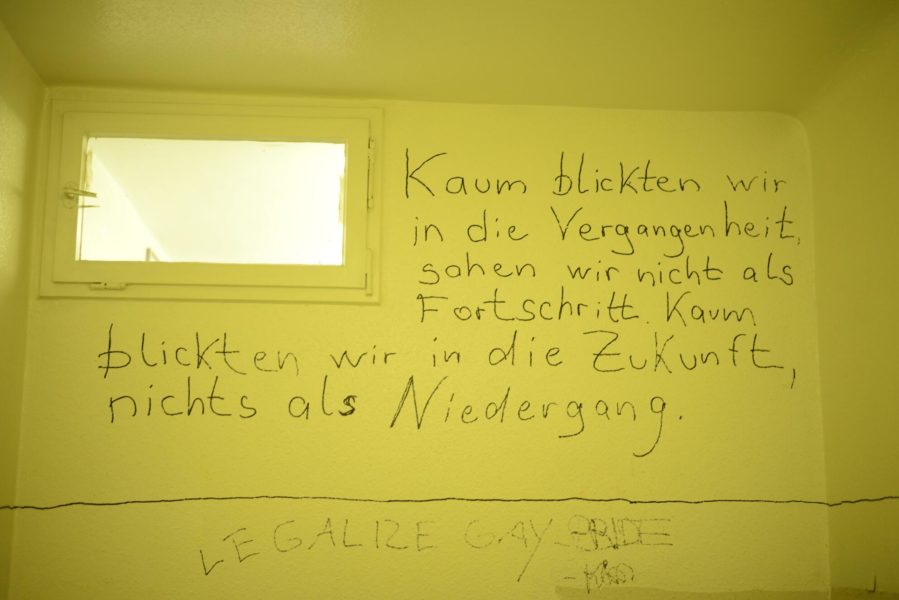 Kaum blickten wir
in die Vergangenheit,
sahen wir nicht als
Fortschritt. Kaum
blickten wir in die Zukunft,
nichts als Niedergang.
LEGALIZE GAY PRIDE